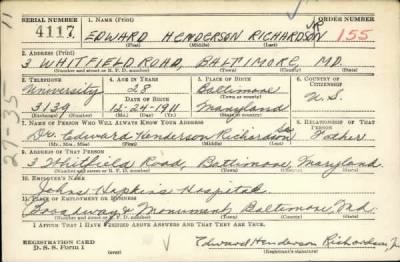 SERIAL NUMBER
1. NAME (Print)
ORDER NUMBER
4117
EDWARD HENDERSON RICHARDSON JR
155
(First) (Middle) (Last)
2. ADDRESS (Print)
3 WHITFIELD ROAD, BALTIMORE, MD.
(Number and street or R. F. D. number) (Town) (County) (State)
3. TELEPHONE
4. AGE IN YEARS
5. PLACE OF BIRTH
6. COUNTRY OF CITIZENSHIP
University
28
Baltimore
DATE OF BIRTH
(Town or county)
U.S.
3139
12-24-1911
Maryland
(Exchange) (Number)
(Mo.) (Day) (Yr.)
(State or country)
7. NAME OF PERSON WHO WILL ALWAYS KNOW YOUR ADDRESS
8. RELATIONSHIP OF THAT PERSON
Dr. Edward Henderson Richardson Sr. Father
(Mr., Mrs., Miss) (First) (Middle) (Last)
9. ADDRESS OF THAT PERSON
3 Whitfield Road, Baltimore, Maryland
(Number and street or R. F. D. number) (Town) (County) (State)
10. EMPLOYER'S NAME
Johns Hopkins Hospital
11. PLACE OF EMPLOYMENT OR BUSINESS
Broadway & Monument, Baltimore, Md.
(Number and street or R. F. D. number) (Town) (County) (State)
I AFFIRM THAT I HAVE VERIFIED ABOVE ANSWERS AND THAT THEY ARE TRUE.
REGISTRATION CARD
D. S. S. Form 1
(over)
Edward Henderson Richardson, Jr.
(Registrant's signature)
27-35
11